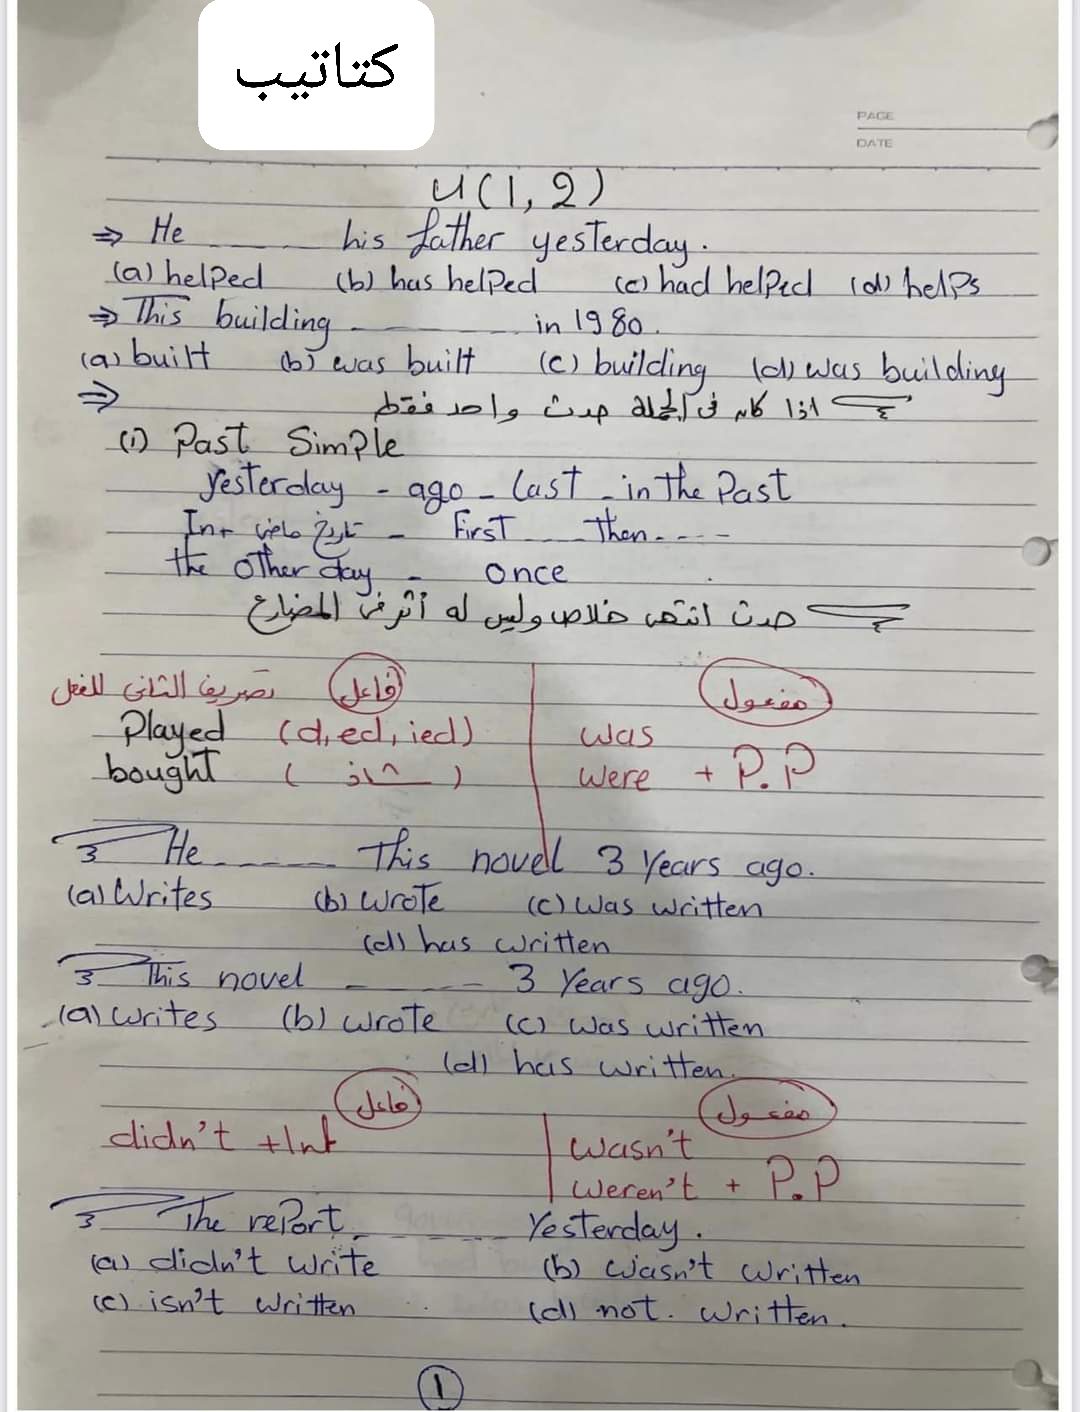 كتاتيب
PAGE
DATE
U(1,2)
⇒ He ------ his father yesterday.
(a) helped (b) has helped (c) had helped (d) helps
⇒ This building ------ in 1980.
(a) built (b) was built (c) building (d) was building
⇒ اذا كان فى الجملة حدث واحد فقط
(1) Past Simple
yesterday - ago - last - in the Past
In + تاريخ ماضى - First ---- Then ----
the other day - once
حدث انتهى خلاص وليس له أثر فى المضارع
تصريف الثانى للفعل فاعل مفعول
Played (d, ed, ied) was
bought (شاذ) were + P.P
He ------ This novel 3 Years ago.
(a) Writes (b) wrote (c) was written
(d) has written
This novel ------ 3 Years ago.
(a) writes (b) wrote (c) was written
(d) has written.
فاعل مفعول
didn't + Inf wasn't
weren't + P.P
The rePort ------ Yesterday.
(a) didn't write (b) wasn't written
(c) isn't written (d) not. written.
1